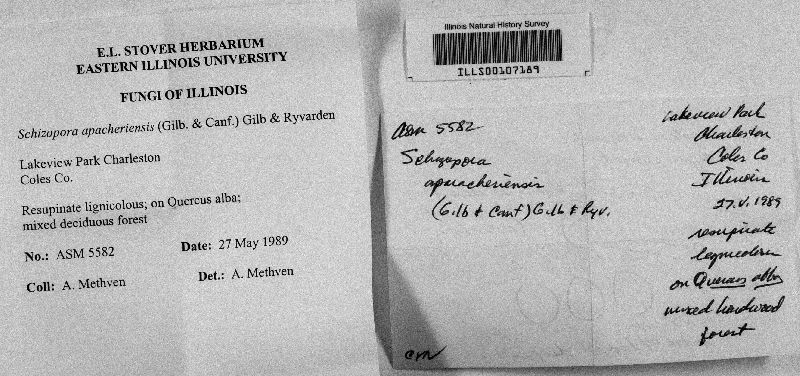 E.L. STOVER HERBARIUM
EASTERN ILLINOIS UNIVERSITY
FUNGI OF ILLINOIS
Schizopora apacheriensis (Gilb. & Canf.) Gilb & Ryvarden
Lakeview Park Charleston
Coles Co.
Resupinate lignicolous; on Quercus alba;
mixed deciduous forest
No.: ASM 5582 Date: 27 May 1989
Coll: A. Methven Det.: A. Methven
Illinois Natural History Survey
ILLS00107189
ASM 5582
Schizopora
apaacheriensis
(Gilb & Canf) Gilb & Ryv.
Lakeview Park
Charleston
Coles Co
Illinois
27.V.1989
resupinate
on Quercus alba
mixed hardwood
forest